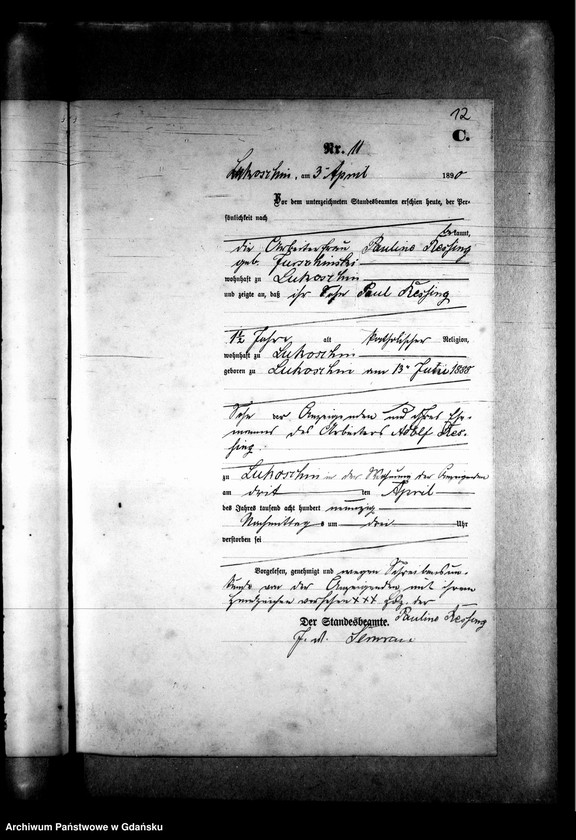 12
C.
Nr. 11
Lukoschin, am 3 April 1890
Vor dem unterzeichneten Standesbeamten erschien heute, der Per-
sönlichkeit nach
bekannt,
die Arbeiterfrau Pauline Kessing
geb.
wohnhaft zu Lukoschin
und zeigte an, daß ihr Sohn Paul Kessing
1½ Jahre alt katholischer Religion,
wohnhaft zu Lukoschin
geboren zu Lukoschin am 13 1888
Sohn der Anzeigenden und ihres Ehe-
mannes des Arbeiters Adolf Kes-
sing
zu Lukoschin in der Wohnung der Anzeigenden
am drit ten April
des Jahres tausend acht hundert neunzig
Nachmittags um drei Uhr
verstorben sei
Vorgelesen, genehmigt und wegen Schreibensun-
kunde von der Anzeigenden mit ihrem
Handzeichen versehen +++ Hdz. der
Pauline Kessing
Der Standesbeamte.
J. V.
Archiwum Państwowe w Gdańsku